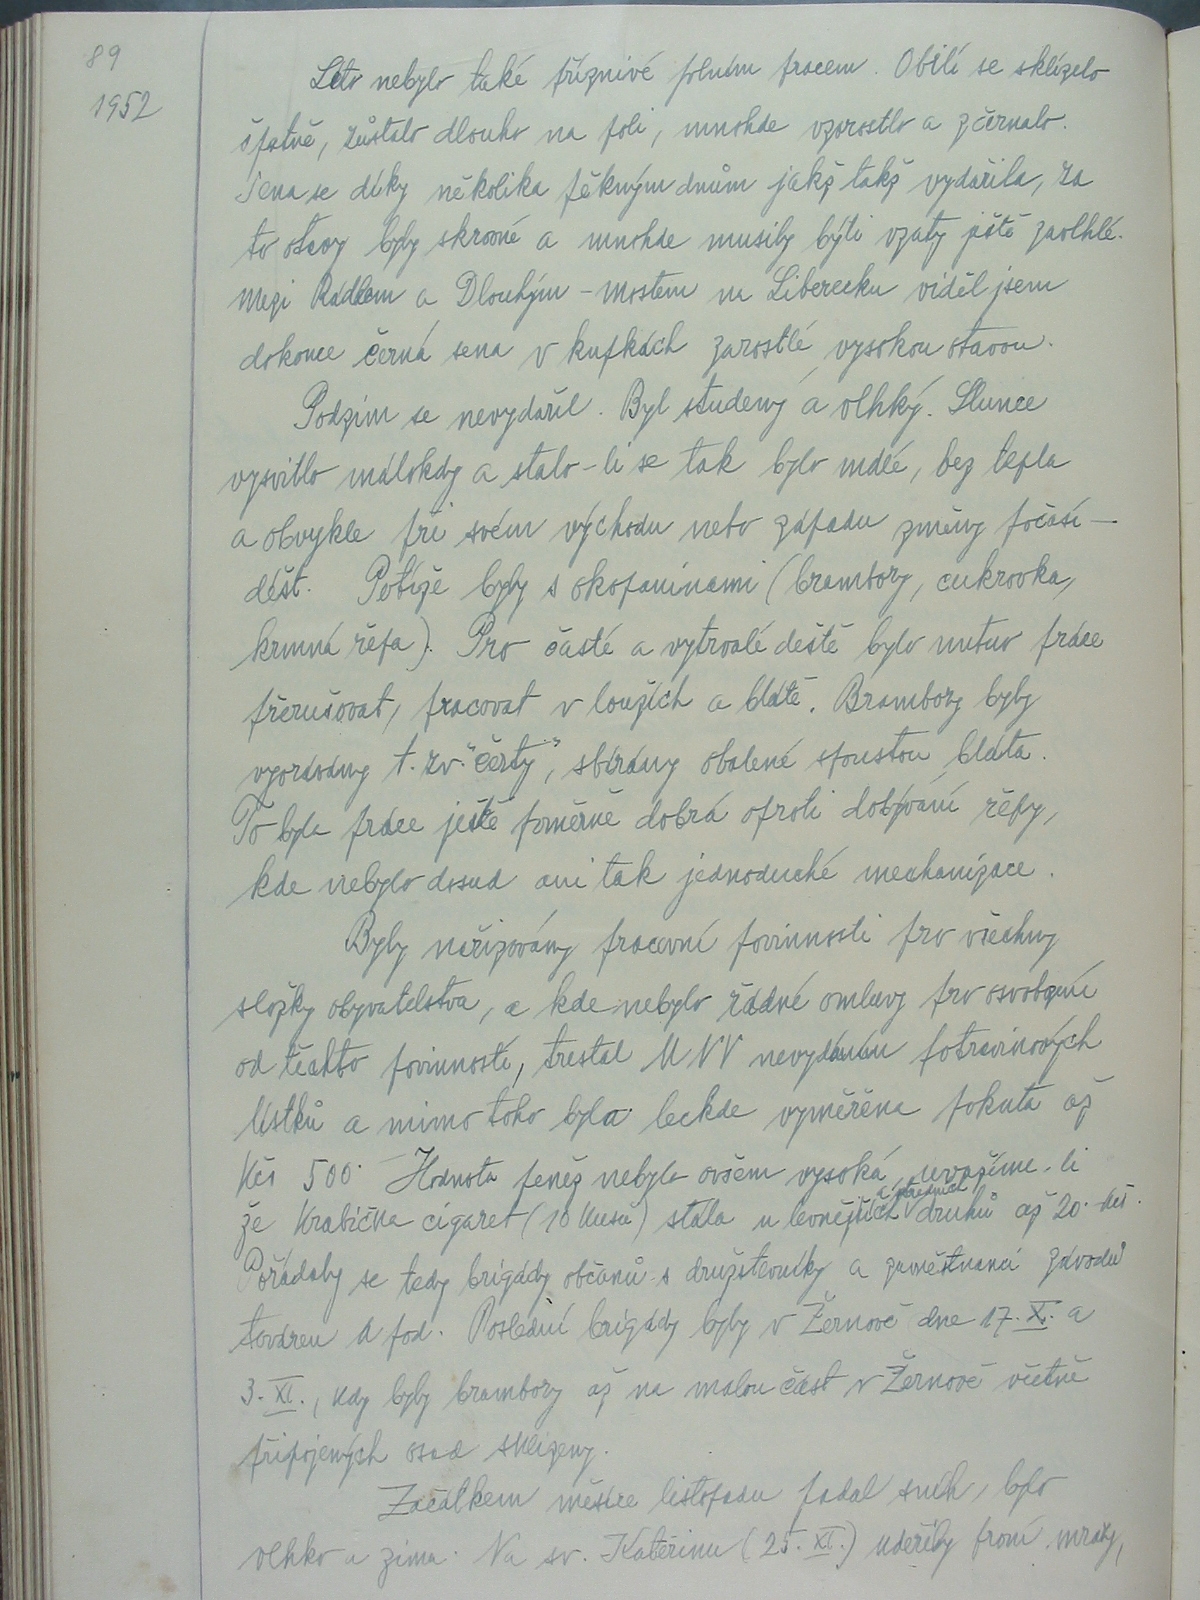 89
1952
Léto nebylo také příznivé polním pracem. Obilí se sklízelo
špatně, zůstalo dlouho na poli, mnohde vzrostlo a zčernalo.
Sena se díky několika pěkným dnům jakž takž vydařila, za
to otavy byly skrovné a mnohde musily býti vzaty ještě zavlhlé.
Mezi Rádlem a Dlouhým-mostem na Liberecku viděl jsem
dokonce černá sena v kupkách zarostlé vysokou otavou.
Podzim se nevydařil. Byl studený a vlhký. Slunce
vysvitlo málokdy a stalo-li se tak bylo mdlé, bez tepla
a obvykle při svém východu nebo západu změny počasí –
déšť. Potíže byly s okopaninami (brambory, cukrovka,
krmná řepa). Pro časté a vytrvalé deště bylo nutno práce
přerušovat, pracovat v loužích a blátě. Brambory byly
vyorávány t. zv. "čerty", sbírány obalené spoustou bláta.
To byla práce ještě poměrně dobrá oproti dobývání řepy,
kde nebylo dosud ani tak jednoduché mechanizace.
Byly nařizovány pracovní povinnosti pro všechny
složky obyvatelstva, a kde nebylo řádné omluvy pro osvobození
od těchto povinností, trestal MNV nevydáním potravinových
lístků a mimo toho byla leckde vyměřena pokuta až
Kčs 500. Hodnota peněz nebyla ovšem vysoká, uvážíme-li
že krabička cigaret (10 kusů) stála u levnějších druhů až 20.- Kčs.
Pořádaly se tedy brigády občanů s družstevníky a zaměstnanci závodů
továren a pod. Poslední brigády byly v Žernově dne 17. X. a
3. XI., kdy byly brambory až na malou část v Žernově včetně
připojených osad sklizeny.
Začátkem měsíce listopadu padal sníh, bylo
vlhko a zima. Na sv. Kateřinu (25. XI.) udeřily první mrazy,